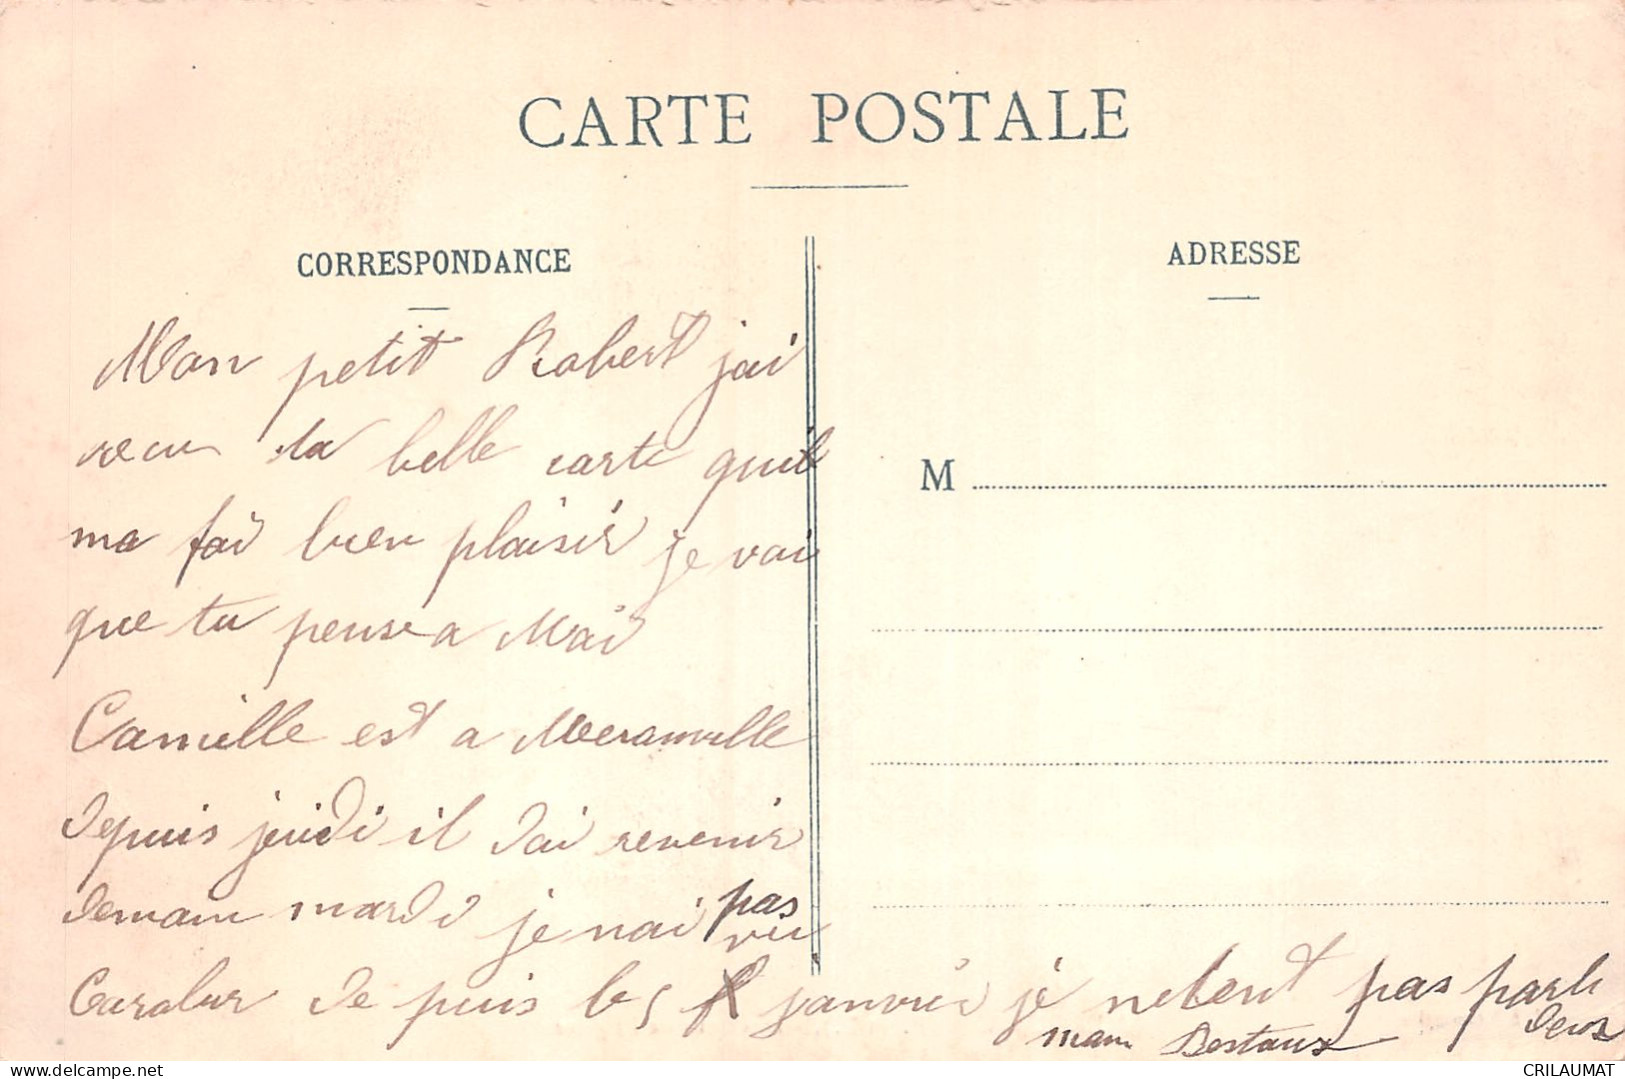 CARTE POSTALE
CORRESPONDANCE
ADRESSE
Mon petit Robert jai
recu ta belle carte quil
ma fai bien plaisir je voi
que tu pense a Mai
Camille est a Meranville
depuis jeudi il dai revenir
demain mardi je nai pas
vu
de puis le 5 janvier je pas parle
mam
M
delcampe.net
CRILAUMAT